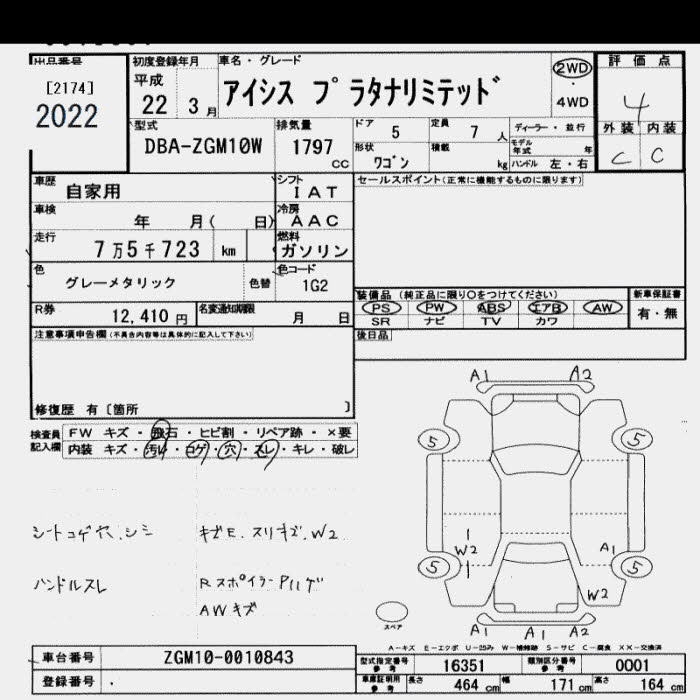 出品番号
[2174]
2022
初度登録年月
平成
22 3月
車名・グレード
アイシス プラタナリミテッド
2WD
・
4WD
評価点
4
外装 内装
C C
型式
DBA-ZGM10W
排気量
1797 CC
ドア 5
定員 7 人
ディーラー・並行
モデル年式 年
形状 ワゴン
積載 kg
ハンドル 左・右
車歴 自家用
シフト IAT
セールスポイント(正常に機能するものに限ります)
車検 年 月( 日)
冷房 AAC
走行 7万5千723 km
燃料 ガソリン
色 グレーメタリック
色替
色コード 1G2
装備品 (純正品に限り○をつけてください)
新車保証書
PS PW ABS エアB AW
有・無
SR ナビ TV カワ
R券 12,410 円
名変通知期限 月 日
注意事項申告欄(不具合内容等は具体的に記入して下さい)
後日品
修復歴 有〔箇所 〕
検査員記入欄
FW キズ・飛石・ヒビ割・リペア跡・×要
内装 キズ・汚れ・コゲ・穴・スレ・キレ・破レ
シートコゲ穴.シミ
キズE.スリキズ.W2
ハンドルスレ
Rスポイラー Pハゲ
AWキズ
A1 A2
5 5
W2 A1
5 5
W2
A1 A1 A2
スペア
A-キズ E-エクボ U-凹み W-補修跡 S-サビ C-腐食 XX-交換済
車台番号 ZGM10-0010843
型式指定番号 参考 16351
類別区分番号 参考 0001
登録番号 .
車庫証明用 参考 長さ 464 cm 幅 171 cm 高さ 164 cm